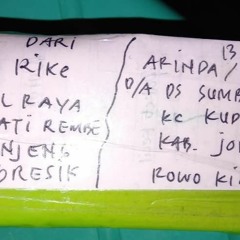 DARI
RIKE
L RAYA
ATI REMBE
NJENG
ORESIK
13
ARINDA /
D/A DS SUMB
KC KUD
KAB. JO
ROWO KI